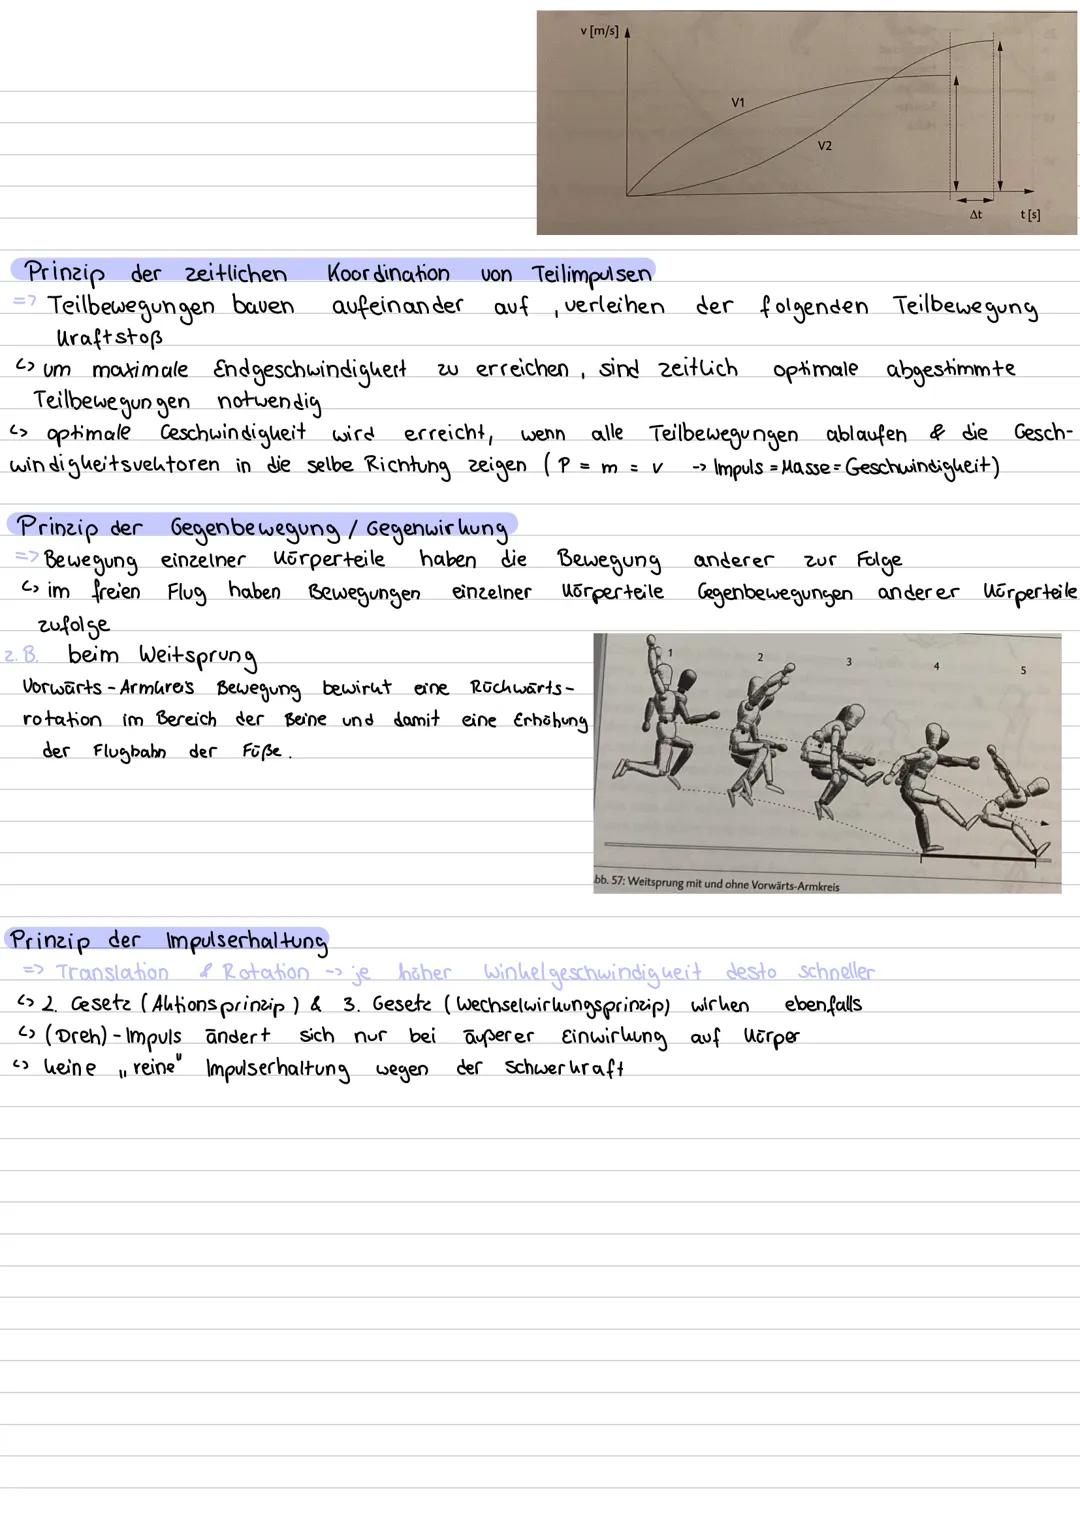 v [m/s]
V1
V2
Δt
t [s]
Prinzip der zeitlichen Koordination von Teilimpulsen
=> Teilbewegungen bauen aufeinander auf, verleihen der folgenden Teilbewegung
Kraftstoß
↳ um maximale Endgeschwindigkeit zu erreichen, sind zeitlich optimale abgestimmte
Teilbewegungen notwendig
↳ optimale Geschwindigkeit wird erreicht, wenn alle Teilbewegungen ablaufen & die Gesch-
windigkeitsvektoren in die selbe Richtung zeigen (P = m = v -> Impuls = Masse = Geschwindigkeit)
Prinzip der Gegenbewegung / Gegenwirkung
=> Bewegung einzelner Körperteile haben die Bewegung anderer zur Folge
↳ im freien Flug haben Bewegungen einzelner Körperteile Gegenbewegungen anderer Körperteile
zufolge
z.B. beim Weitsprung
Vorwärts-Armkreis Bewegung bewirkt eine Rückwärts-
rotation im Bereich der Beine und damit eine Erhöhung
der Flugbahn der Füße.
1 2 3 4 5
bb. 57: Weitsprung mit und ohne Vorwärts-Armkreis
Prinzip der Impulserhaltung
=> Translation & Rotation -> je höher Winkelgeschwindigkeit desto schneller
↳ 2. Gesetz (Aktionsprinzip) & 3. Gesetz (Wechselwirkungsprinzip) wirken ebenfalls
↳ (Dreh)-Impuls ändert sich nur bei äußerer Einwirkung auf Körper
↳ keine „reine" Impulserhaltung wegen der Schwerkraft